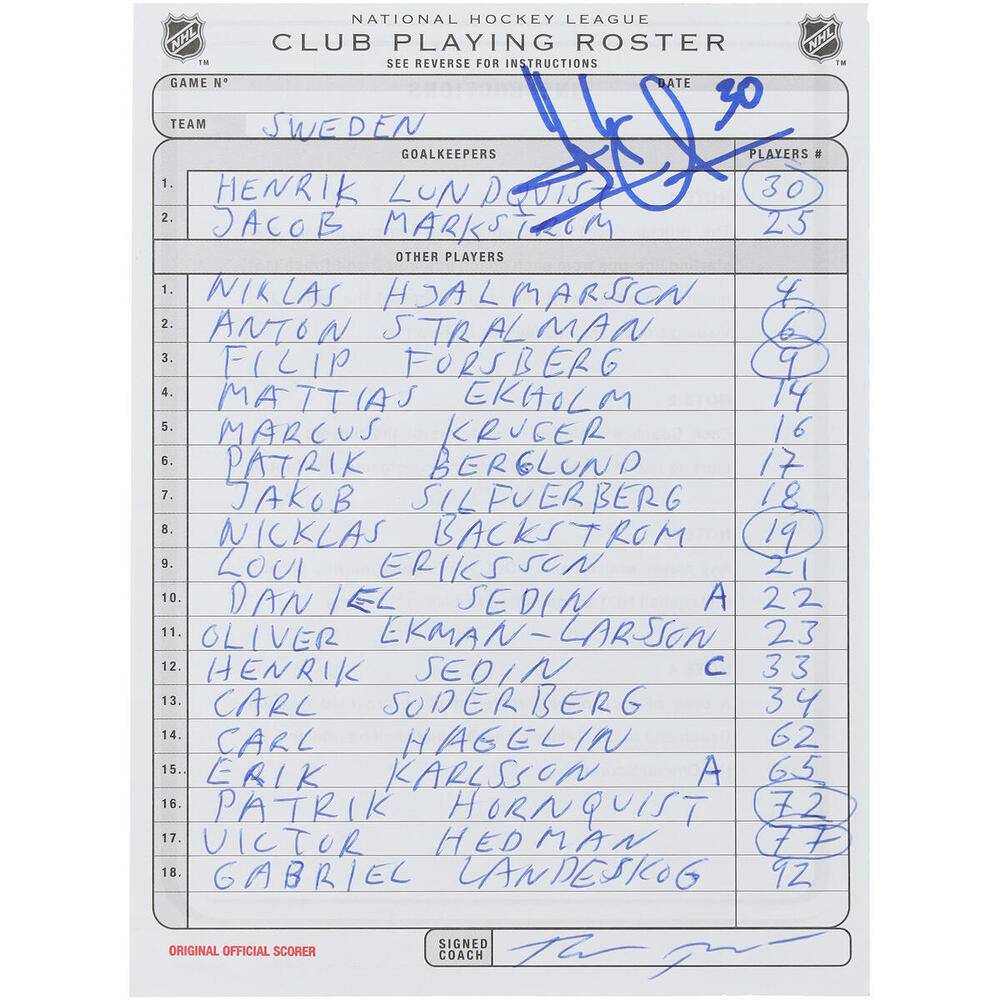 NATIONAL HOCKEY LEAGUE
CLUB PLAYING ROSTER
SEE REVERSE FOR INSTRUCTIONS
NHL TM
NHL TM
GAME Nº DATE 30
TEAM SWEDEN
GOALKEEPERS PLAYERS #
1. HENRIK LUNDQVIST 30
2. JACOB MARKSTROM 25
OTHER PLAYERS
1. NIKLAS HJALMARSSON 4
2. ANTON STRALMAN 6
3. FILIP FORSBERG 9
4. MATTIAS EKHOLM 14
5. MARCUS KRUGER 16
6. PATRIK BERGLUND 17
7. JAKOB SILFVERBERG 18
8. NICKLAS BACKSTROM 19
9. LOUI ERIKSSON 21
10. DANIEL SEDIN A 22
11. OLIVER EKMAN-LARSSON 23
12. HENRIK SEDIN C 33
13. CARL SODERBERG 34
14. CARL HAGELIN 62
15. ERIK KARLSSON A 65
16. PATRIK HORNQUIST 72
17. VICTOR HEDMAN 77
18. GABRIEL LANDESKOG 92
ORIGINAL OFFICIAL SCORER
SIGNED COACH